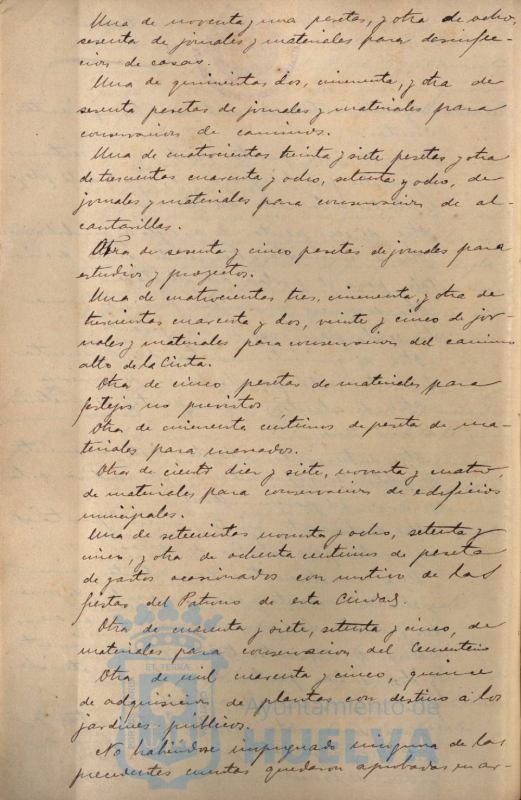 Una de noventa y una pesetas, y otra de ocho,
sesenta de jornales y materiales para desinfec-
cion de casas.
Una de quinientas dos, cincuenta, y otra de
sesenta pesetas de jornales y materiales para
conservacion de caminos.
Una de cuatrocientas treinta y siete pesetas y otra
de trescientas cuarenta y ocho, setenta y ocho, de
jornales y materiales para conservacion de al-
cantarillas.
Otra de sesenta y cinco pesetas de jornales para
estudios y proyectos.
Una de cuatrocientas tres, cincuenta, y otra de
trescientas cuarenta y dos, veinte y cinco de jor-
nales y materiales para conservacion del camino
alto de la Cinta.
Otra de cinco pesetas de materiales para
festejos no previstos
Otra de cincuenta céntimos de peseta de ma-
teriales para mercados.
Otra de ciento diez y siete, noventa y cuatro,
de materiales para conservacion de edificios
municipales.
Una de setecientas noventa y ocho, setenta y
cinco, y otra de ochenta centimos de peseta
de gastos ocasionados con motivo de las
fiestas del Patrono de esta Ciudad.
Otra de cuarenta y siete, setenta y cinco, de
materiales para conservacion del Cementerio
Otra de mil cuarenta y cinco, quince
de adquisicion de plantas con destino a los
jardines públicos.
No habiéndose impugnado ninguna de las
precedentes cuentas quedaron aprobadas en ar-
ET TERRA
Ayuntamiento de
HUELVA